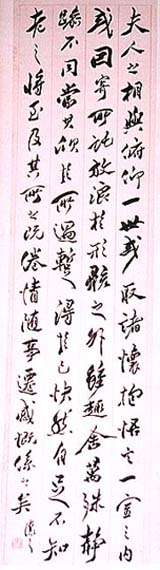 夫人之相與俯仰一世或取諸懷抱悟言一室之內
或因寄所託放浪於形骸之外雖趣舍萬殊靜
躁不同當其欣於所遇暫得於己快然自足不知
老之將至及其所之既倦情隨事遷感慨係之矣